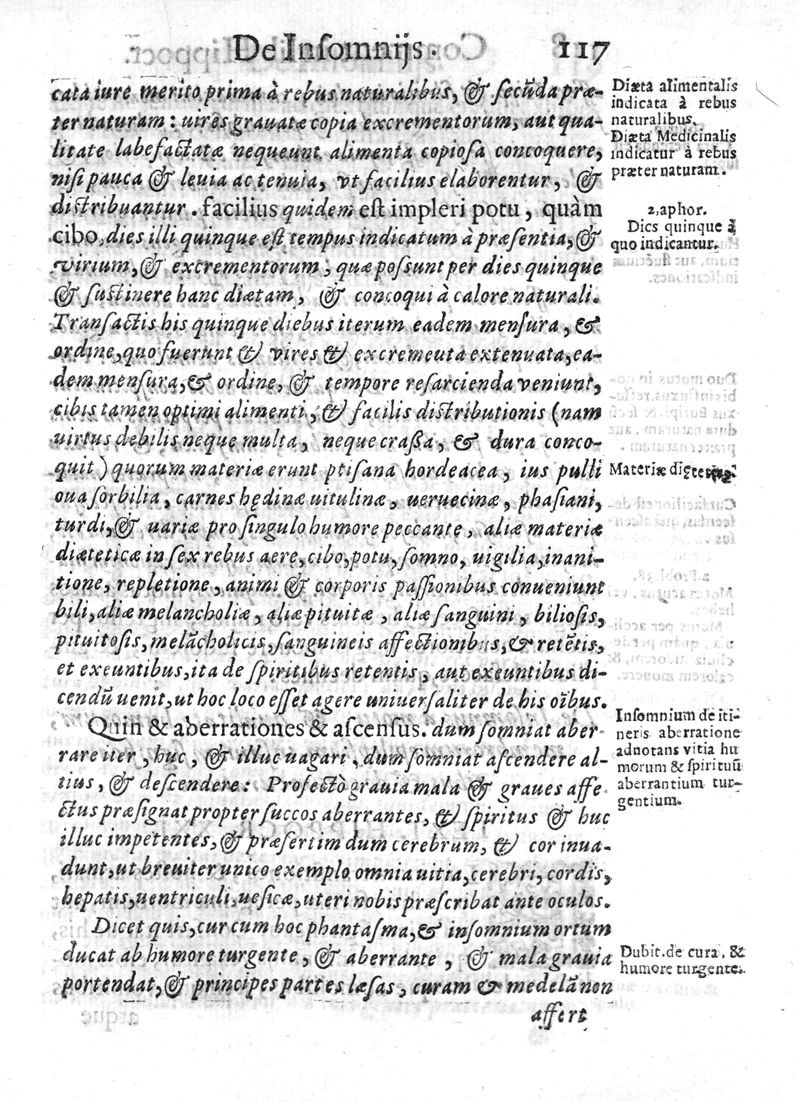 De Insomnijs.
117
cata iure merito prima à rebus naturalibus, & secūda præ-
ter naturam: uires grauatæ copia excrementorum, aut qua-
litate labefactatæ nequeunt alimenta copiosa concoquere,
nisi pauca & leuia ac tenuia, vt facilius elaborentur, &
distribuantur. facilius quidem est impleri potu, quàm
cibo, dies illi quinque est tempus indicatum à præsentia, &
virium, & excrementorum, quæ possunt per dies quinque
& sustinere hanc diætam, & concoqui à calore naturali.
Transactis his quinque diebus iterum eadem mensura, &
ordine, quo fuerunt & vires & excremeuta extenuata, ea-
dem mensura, & ordine, & tempore resarcienda veniunt,
cibis tamen optimi alimenti, & facilis distributionis (nam
uirtus debilis neque multa, neque crassa, & dura conco-
quit) quorum materiæ erunt ptisana hordeacea, ius pulli
oua sorbilia, carnes hędinæ uitulinæ, ueruecinæ, phasiani,
turdi, & uariæ pro singulo humore peccante, aliæ materiæ
diæteticæ in sex rebus aere, cibo, potu, somno, uigilia, inani-
tione, repletione, animi & corporis passionibus conueniunt
bili, aliæ melancholiæ, aliæ pituitæ, aliæ sanguini, biliosis,
pituitosis, melācholicis, sanguineis affectionibus, & retētis,
et exeuntibus, ita de spiritibus retentis, aut exeuntibus di-
cendū uenit, ut hoc loco esset agere uniuersaliter de his oībus.
Quin & aberrationes & ascensus. dum somniat aber-
rare iter, huc, & illuc uagari, dum somniat ascendere al-
tius, & descendere: Profectò grauia mala & graues affe-
ctus præsignat propter succos aberrantes, & spiritus & huc
illuc impetentes, & præsertim dum cerebrum, & cor inua-
dunt, ut breuiter unico exemplo omnia uitia, cerebri, cordis,
hepatis, uentriculi, uesicæ, uteri nobis præscribat ante oculos.
Dicet quis, cur cum hoc phantasma, & insomnium ortum
ducat ab humore turgente, & aberrante, & mala grauia
portendat, & principes partes læsas, curam & medelā non
affert
Diæta alimentalis
indicata à rebus
naturalibus.
Diæta Medicinalis
indicatur à rebus
præter naturam.
2. aphor.
Dies quinque à
quo indicantur.
Materiæ
Insomnium de iti-
neris aberratione
adnotans vitia hu
morum & spirituū
aberrantium tur-
gentium.
Dubit. de cura, &
humore turgente.